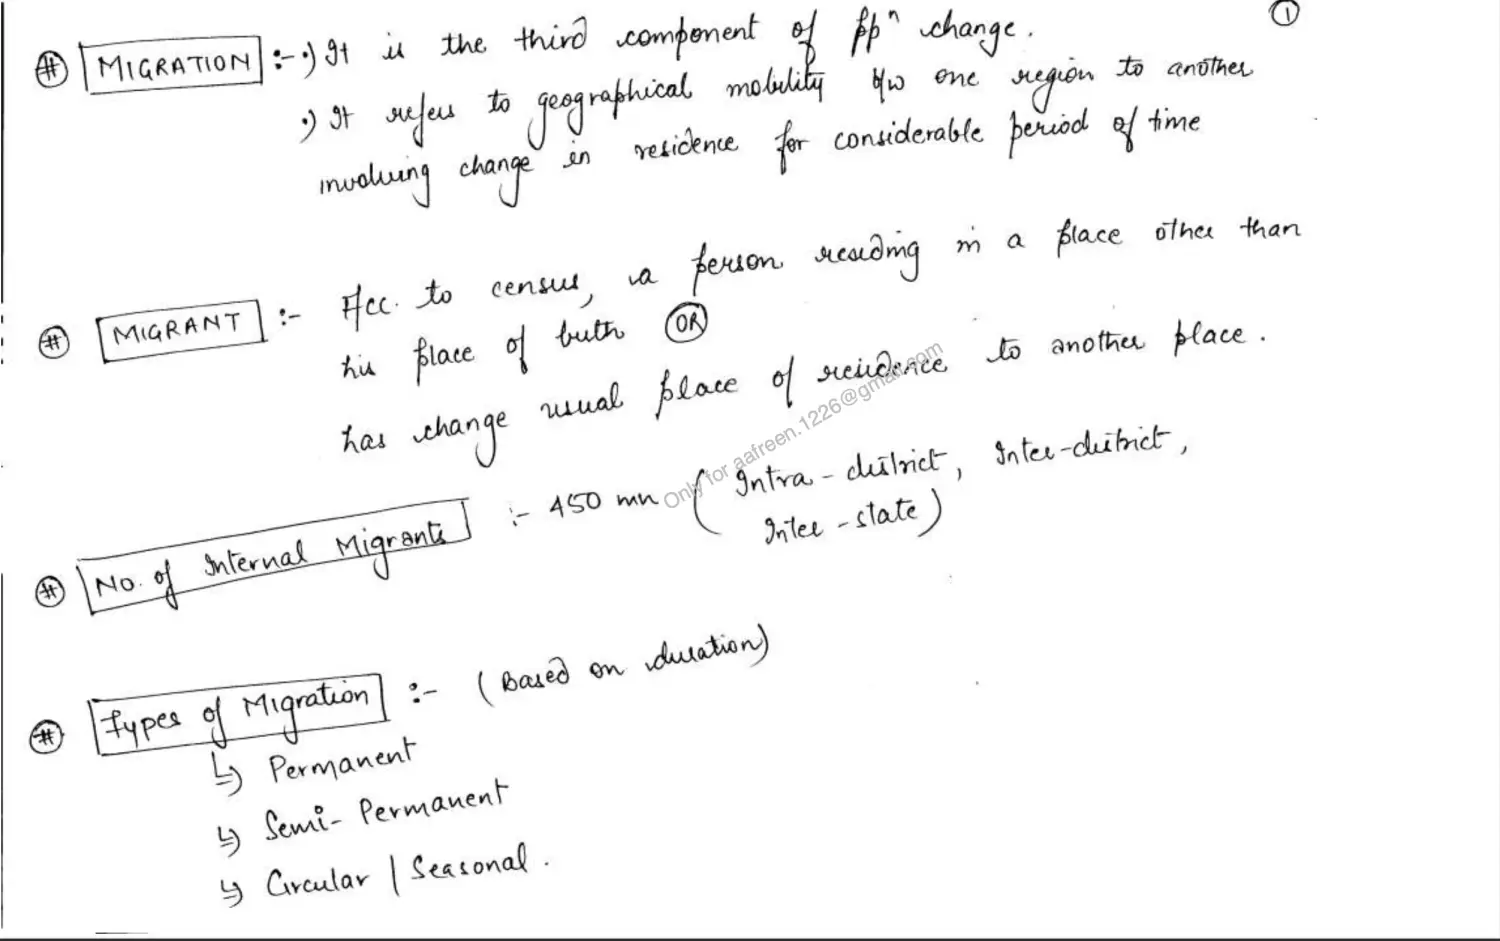 ①
# MIGRATION :- •) It is the third component of ppⁿ change.
•) It refers to geographical mobility b/w one region to another
involving change in residence for considerable period of time
# MIGRANT :- Acc. to census, a person residing in a place other than
his place of birth OR
has change usual place of residence to another place.
Only for aafreen.1226@gmail.com
# No. of Internal Migrants :- 450 mn (Intra-district, Inter-district,
Inter-state)
# Types of Migration :- (Based on duration)
↳ Permanent
↳ Semi-Permanent
↳ Circular / Seasonal.